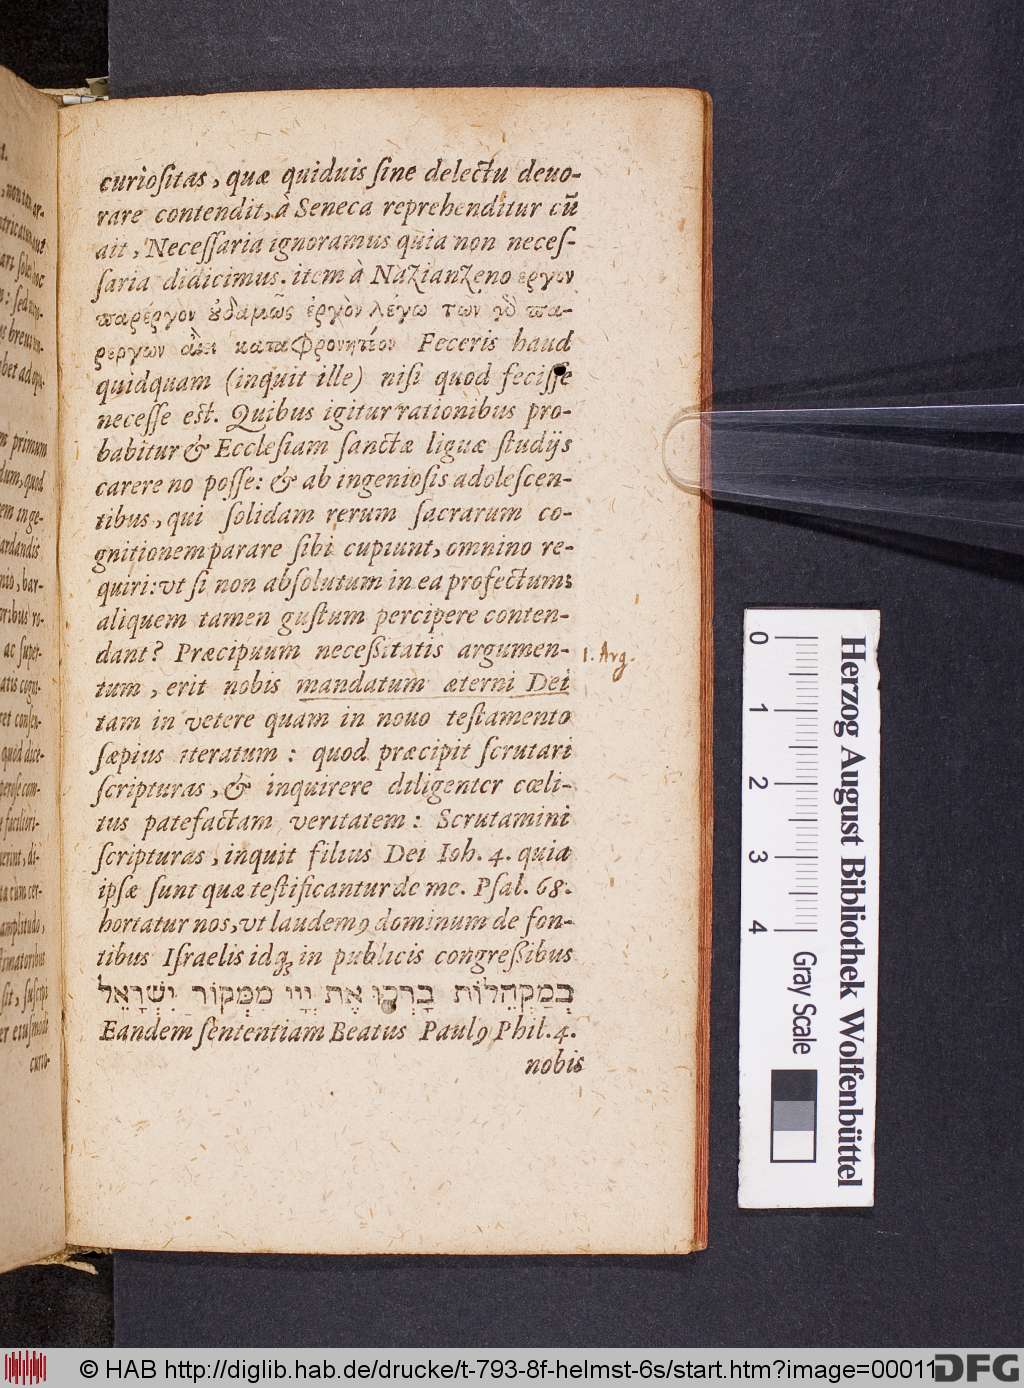 curiositas, quæ quiduis sine delectu deuo-
rare contendit, à Seneca reprehenditur cū
ait, Necessaria ignoramus quia non neces-
saria didicimus. item à Nazianzeno ἔργον
παρέργον ἐδαμῶς ἐργὸν λέγω τῶν γὸ πα-
ρεργων καταφρονητέον Feceris haud
quidquam (inquit ille) nisi quod fecisse
necesse est. Quibus igitur rationibus pro-
babitur & Ecclesiam sanctæ liguæ studijs
carere no posse: & ab ingeniosis adolescen-
tibus, qui solidam rerum sacrarum co-
gnitionem parare sibi cupiunt, omnino re-
quiri: vt si non absolutum in ea profectum:
aliquem tamen gustum percipere conten-
dant? Præcipuum necessitatis argumen-
tum, erit nobis mandatum æterni Dei
tam in vetere quam in nouo testamento
sæpius iteratum: quod præcipit scrutari
scripturas, & inquirere diligenter cœli-
tus patefactam veritatem: Scrutamini
scripturas, inquit filius Dei Ioh. 4. quia
ipsæ sunt quæ testificantur de me. Psal. 68.
hortatur nos, vt laudemꝰ dominum de fon-
tibus Israelis idqꝫ in publicis congressibus
בְּמַקְהֵלוֹת בָּרְכוּ אֶת יְיָי מִמְּקוֹר יִשְׂרָאֵל
Eandem sententiam Beatus Paulꝰ Phil. 4.
nobis
1. Arg.
curio-
0 1 2 3 4
Gray Scale
Herzog August Bibliothek Wolfenbüttel
© HAB http://diglib.hab.de/drucke/t-793-8f-helmst-6s/start.htm?image=00011
DFG